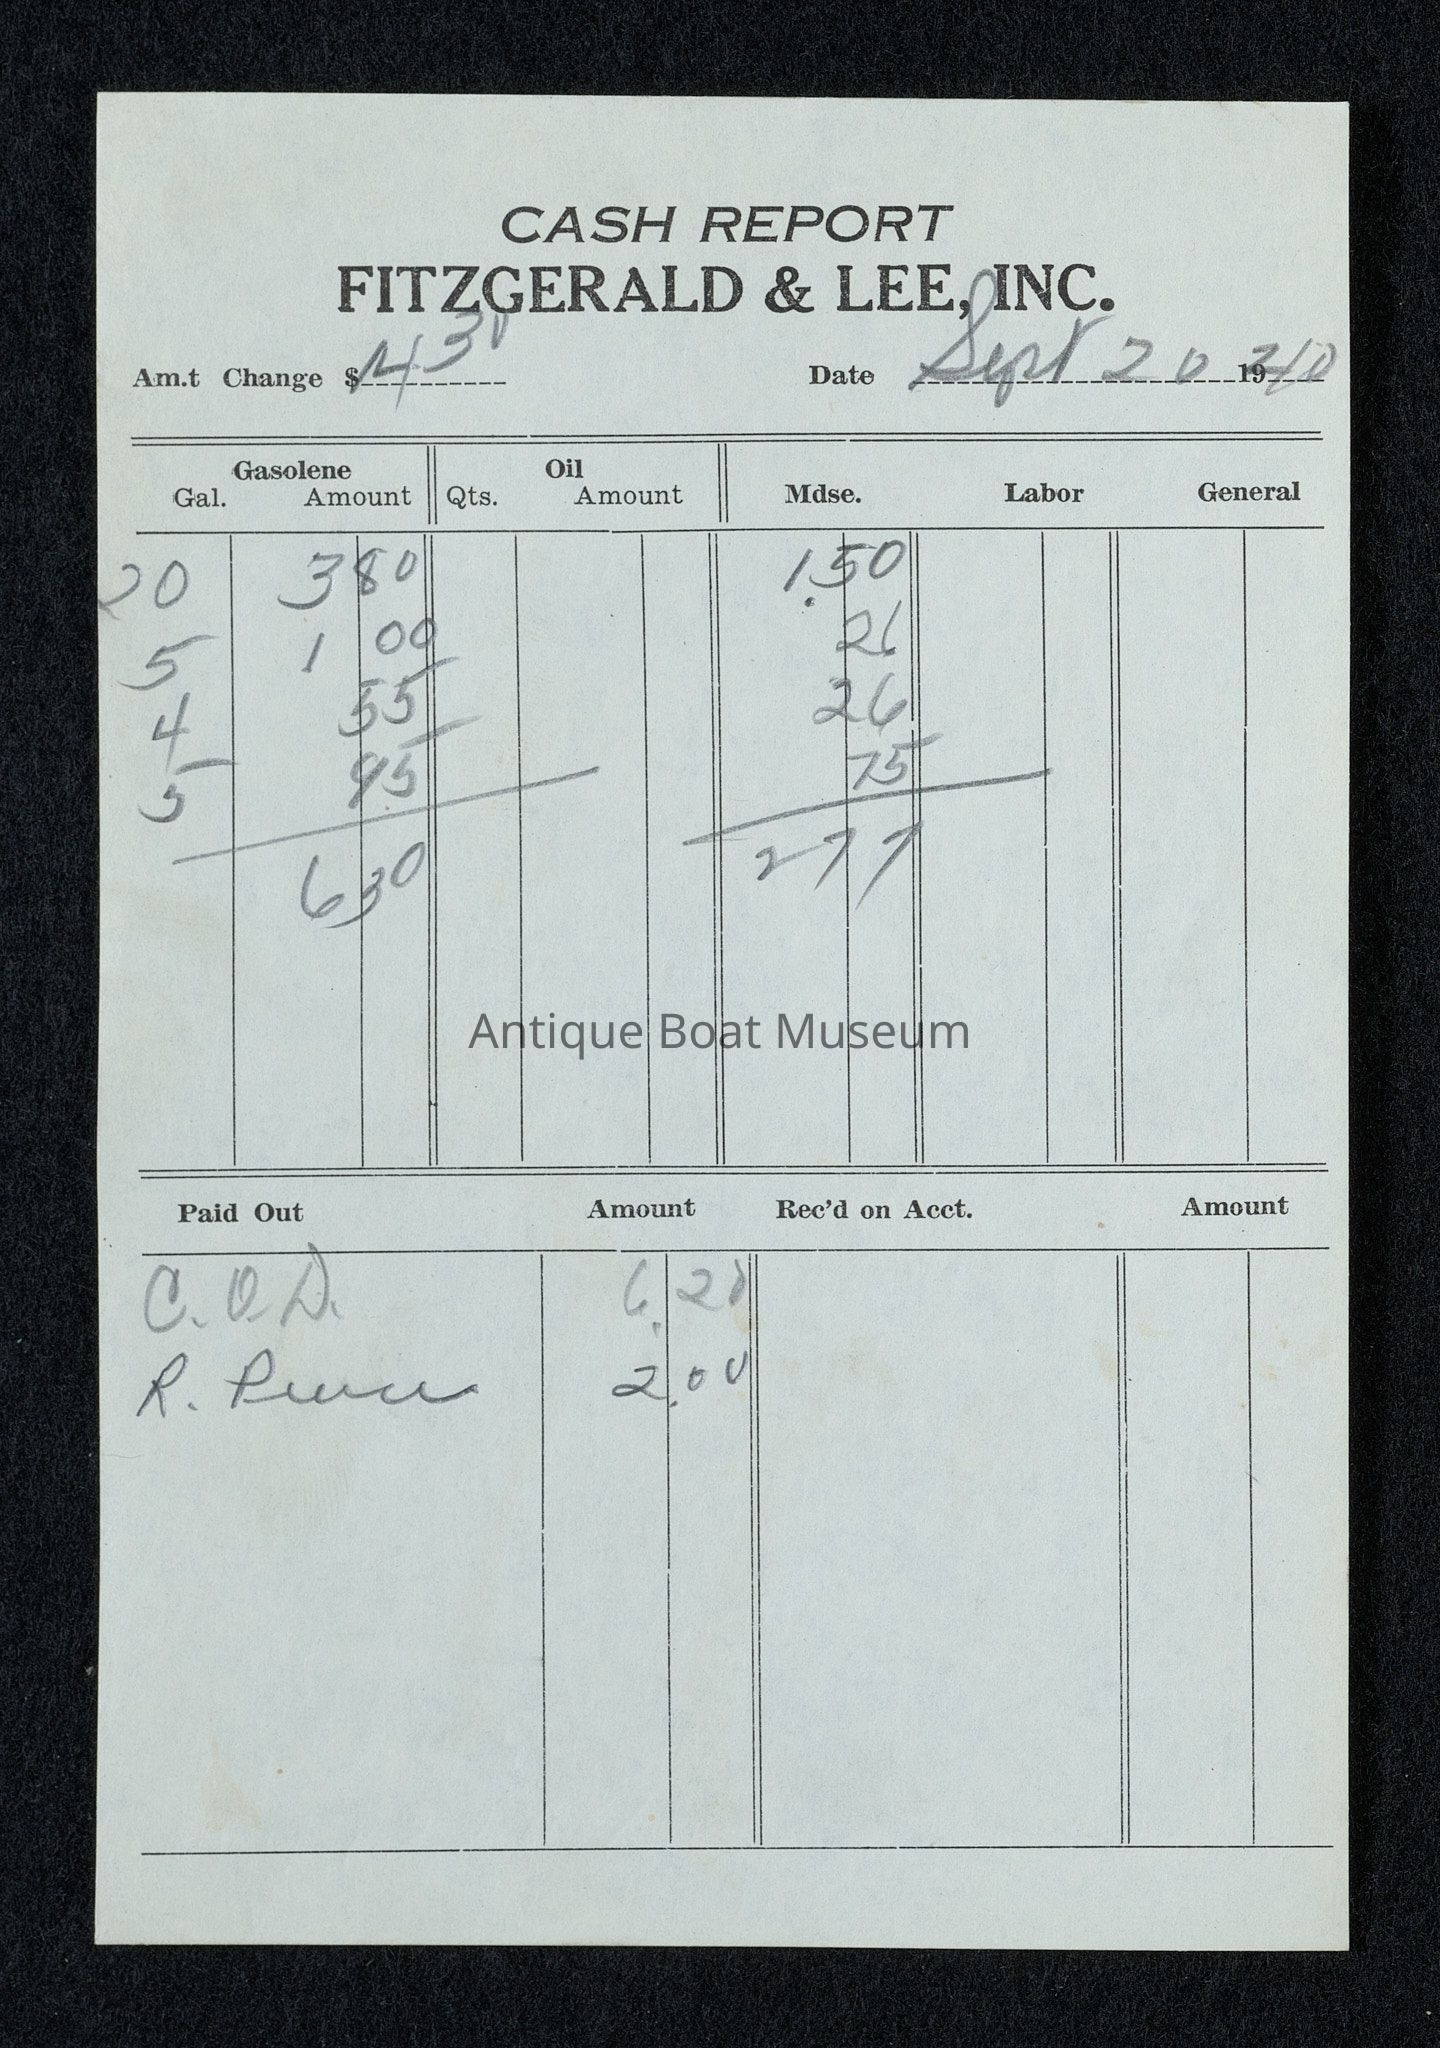 CASH REPORT
FITZGERALD & LEE, INC.
Am.t Change $ 14 30 Date Sept 20 1940
Gasolene Oil
Gal. Amount Qts. Amount Mdse. Labor General
20 3 80 1.50
5 1 00 26
4 55 26
5 95 75
6 30 2 77
Antique Boat Museum
Paid Out Amount Rec'd on Acct. Amount
C.O.D. 6.20
R. 2.00